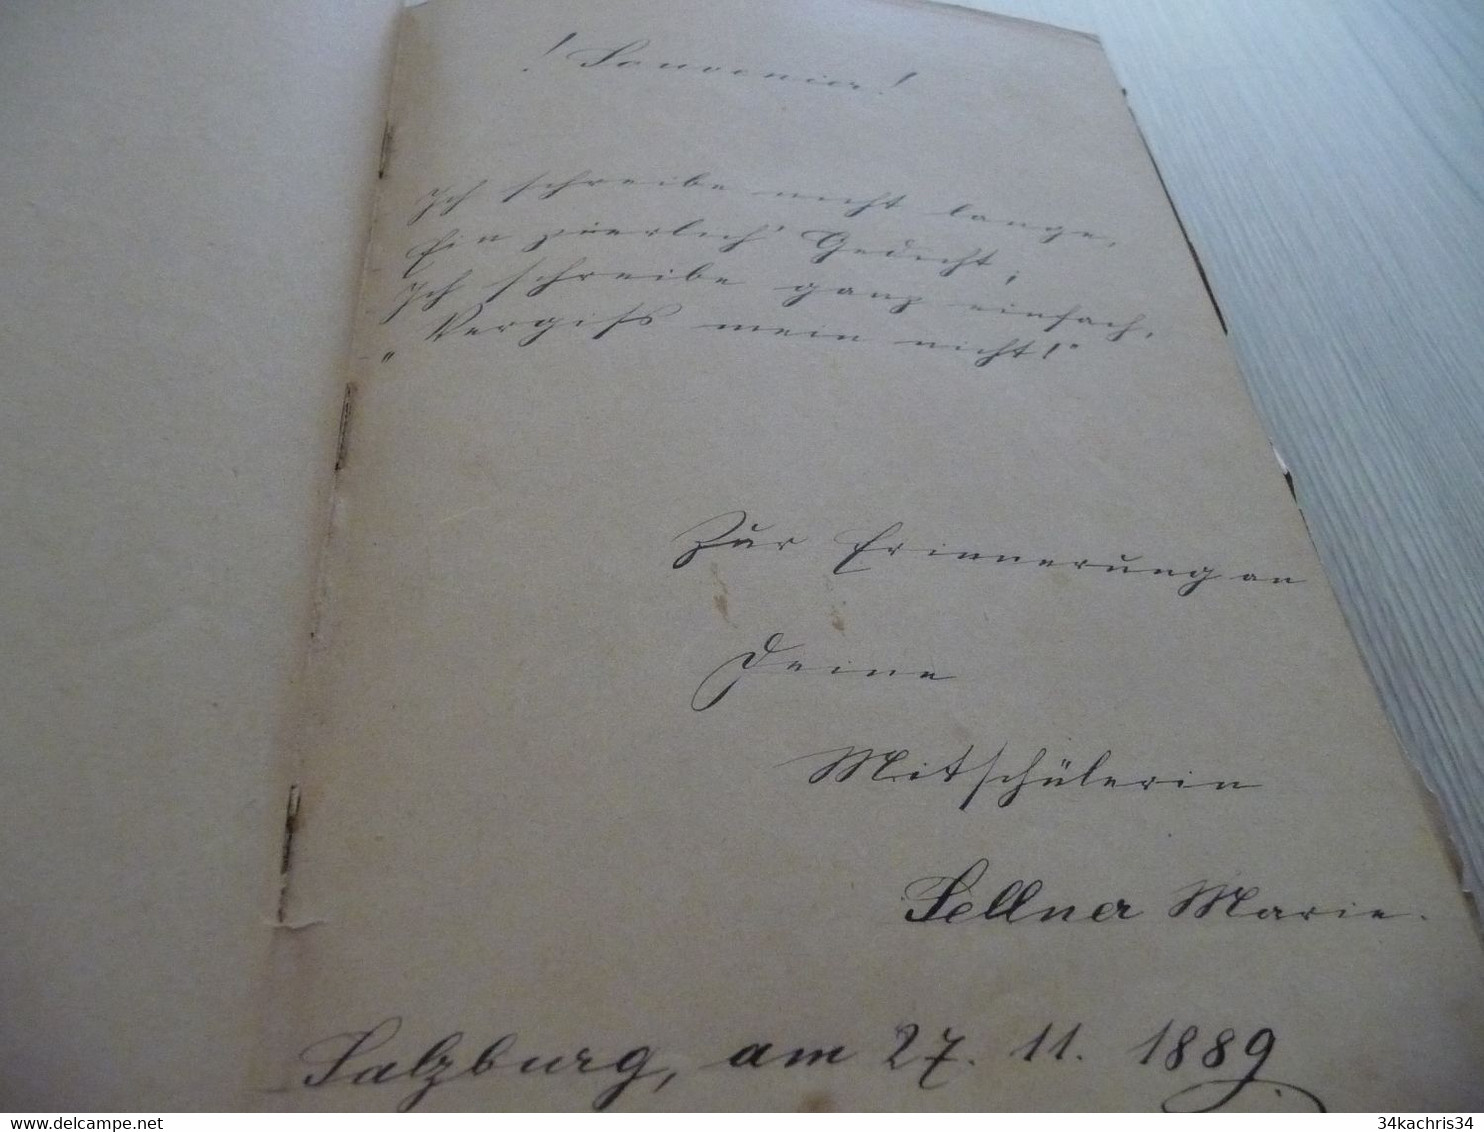 ! Souvenier!
Ich schreibe nicht lange,
Ein zierlich' Gedicht,
Ich schreibe ganz einfach,
„Vergiß mein nicht!"
Zur Erinnerung an
Deine
Mitschülerin
Sellner Marie.
Salzburg, am 27. 11. 1889.
delcampe.net
34kachris34